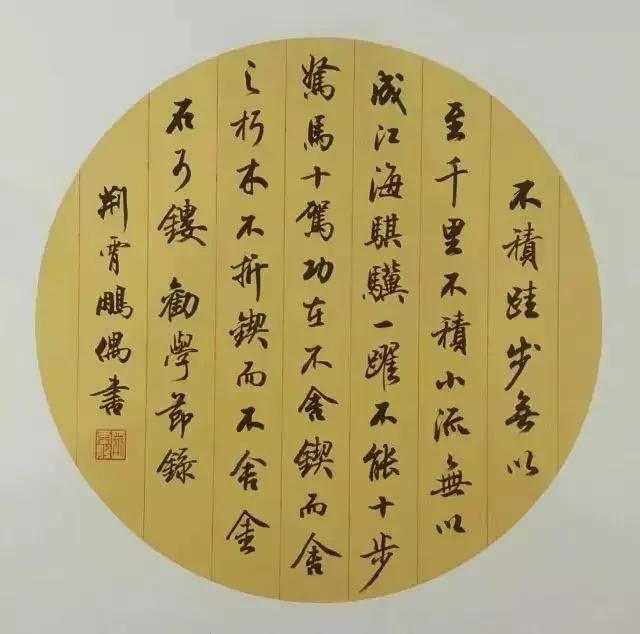 不積跬步無以
至千里不積小流無以
成江海騏驥一躍不能十步
駑馬十駕功在不舍鍥而舍
之朽木不折鍥而不舍金
石可鏤 勸學節錄
荆霄鵬偶書